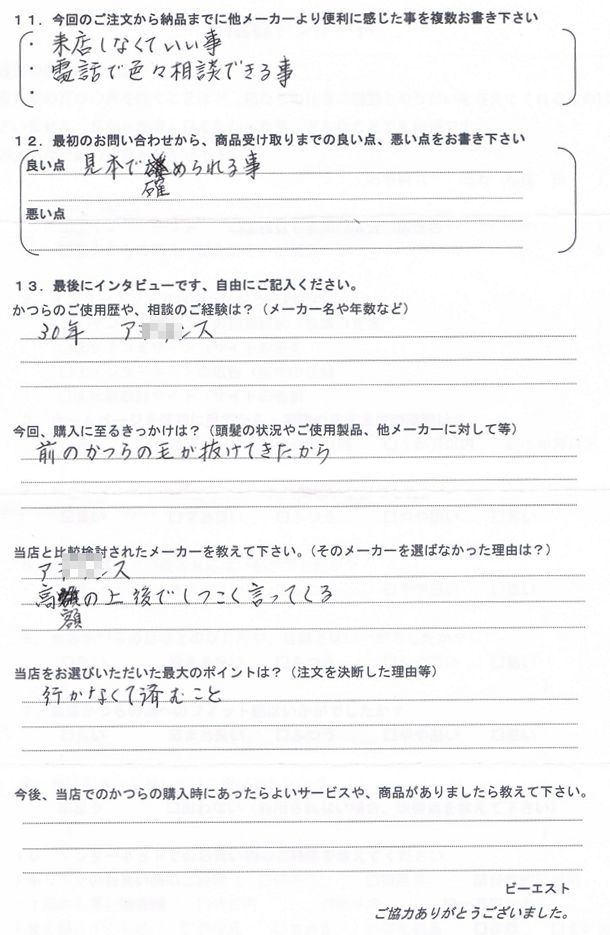 11．今回のご注文から納品までに他メーカーより便利に感じた事を複数お書き下さい
・来店しなくていい事
・電話で色々相談できる事
・
12．最初のお問い合わせから、商品受け取りまでの良い点、悪い点をお書き下さい
良い点 見本で確められる事
悪い点
13．最後にインタビューです、自由にご記入ください。
かつらのご使用歴や、相談のご経験は？（メーカー名や年数など）
30年 ア ンス
今回、購入に至るきっかけは？（頭髪の状況やご使用製品、他メーカーに対して等）
前のかつらの毛が抜けてきたから
当店と比較検討されたメーカーを教えて下さい。（そのメーカーを選ばなかった理由は？）
ア ンス
高額の上後でしつこく言ってくる
当店をお選びいただいた最大のポイントは？（注文を決断した理由等）
行かなくて済むこと
今後、当店でのかつらの購入時にあったらよいサービスや、商品がありましたら教えて下さい。
ビーエスト
ご協力ありがとうございました。